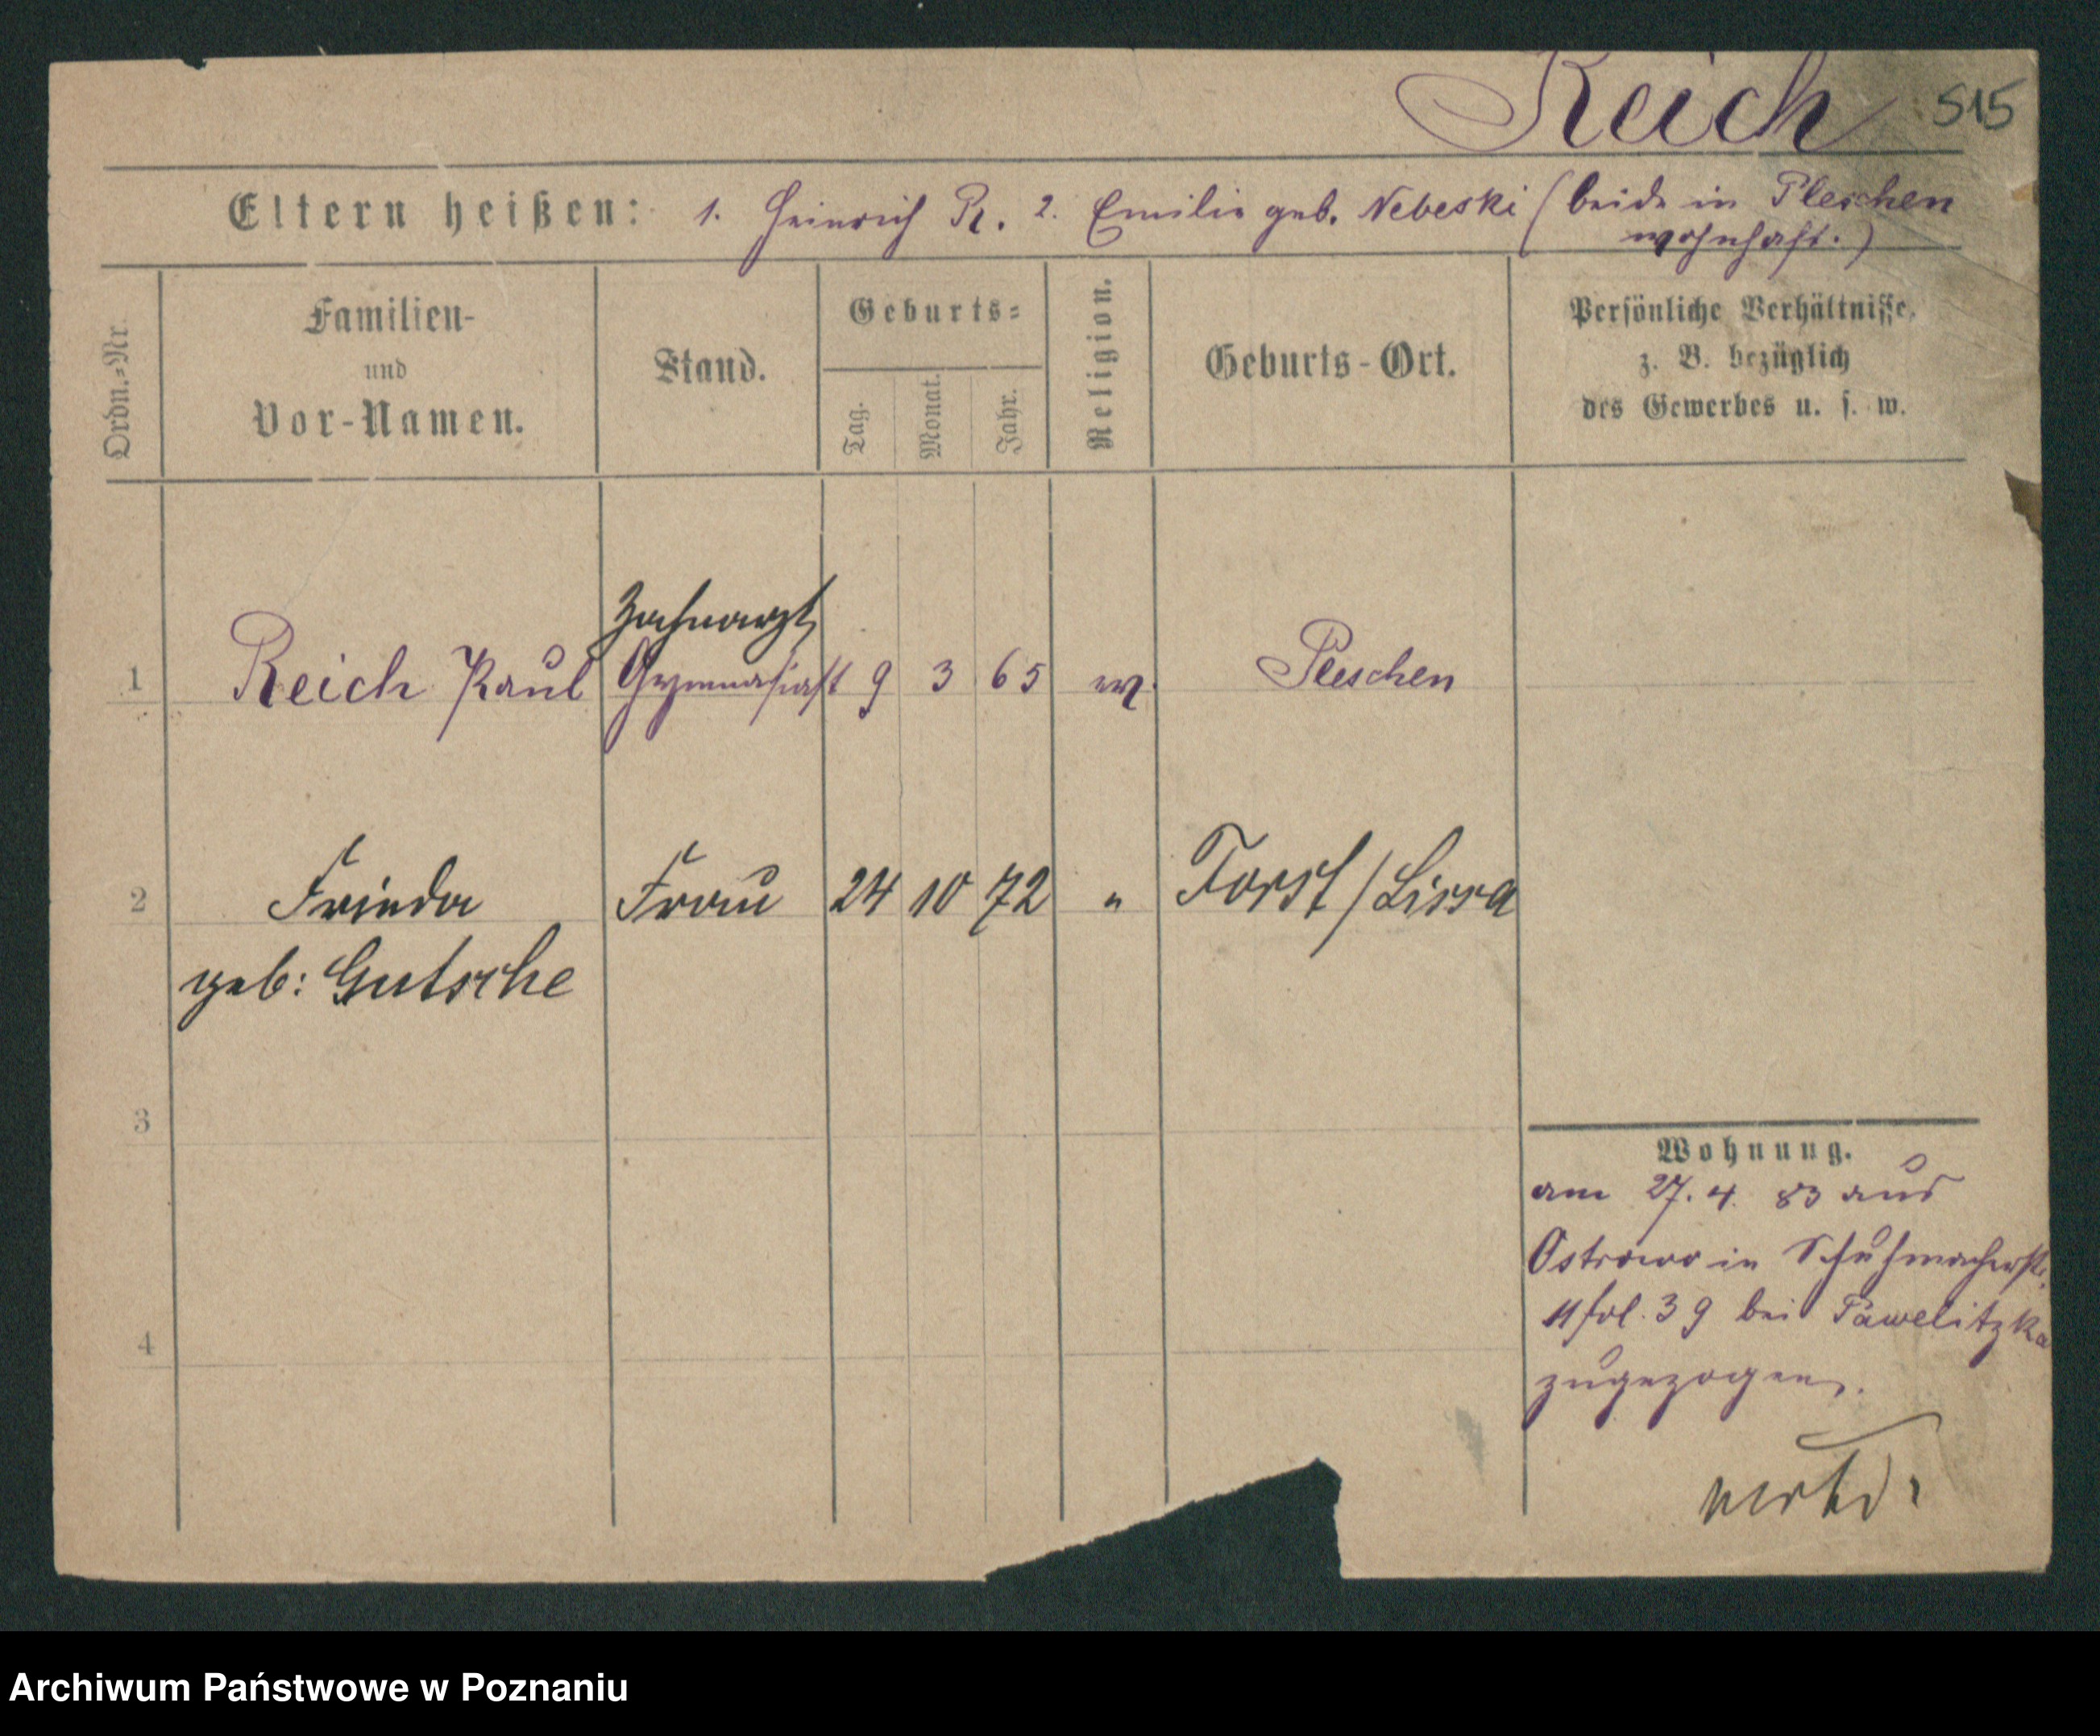 Reich 515
Eltern heißen: 1. Heinrich R. 2. Emilie geb. Nebeski (beide in Pleschen
wohnhaft.)
Ordn.-Nr.
Familien-
und
Vor-Namen.
Stand.
Geburts-
Tag.
Monat.
Jahr.
Religion.
Geburts-Ort.
Persönliche Verhältnisse,
z. B. bezüglich
des Gewerbes u. s. w.
Zahnarzt
1 Reich Paul Gymnasiast 9 3 65 ev. Pleschen
2 Frieda Frau 24 10 72 " Forst/Lissa
geb: Gutsche
3
4
Wohnung.
am 27. 4. 83 aus
Ostrowo in Schuhmacherstr.
11 fol. 39 bei Pawelitzka
zugezogen.
Archiwum Państwowe w Poznaniu